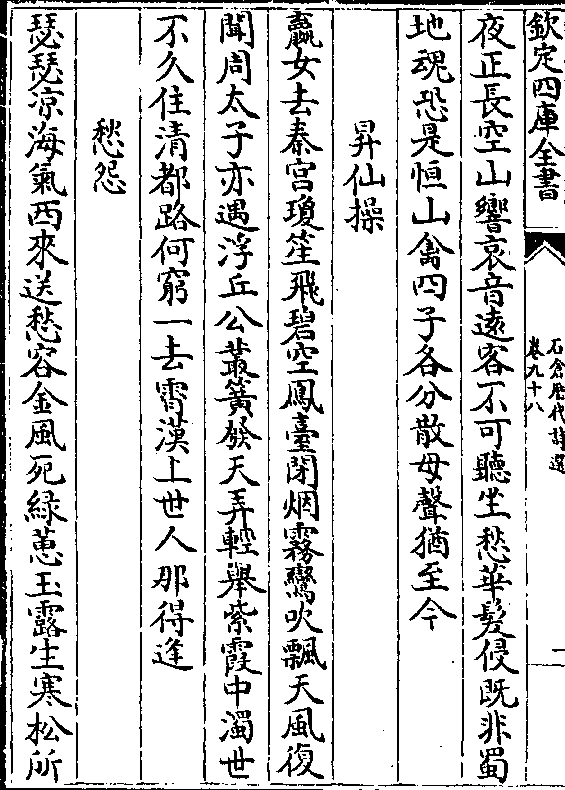 欽定四庫全書
石倉歷代詩選
卷九十八
一
夜正長空山響哀音遠客不可聽坐愁華髮侵既非蜀
地魂恐是恒山禽四子各分散母聲猶至今
昇仙操
嬴女去秦宮瓊笙飛碧空鳳臺閉烟霧鸞吹飄天風復
聞周太子亦遇浮丘公叢簧發天弄輕舉紫霞中濁世
不久住清都路何窮一去霄漢上世人那得逢
愁怨
瑟瑟凉海氣西來送愁容金風死綠蕙玉露生寒松所